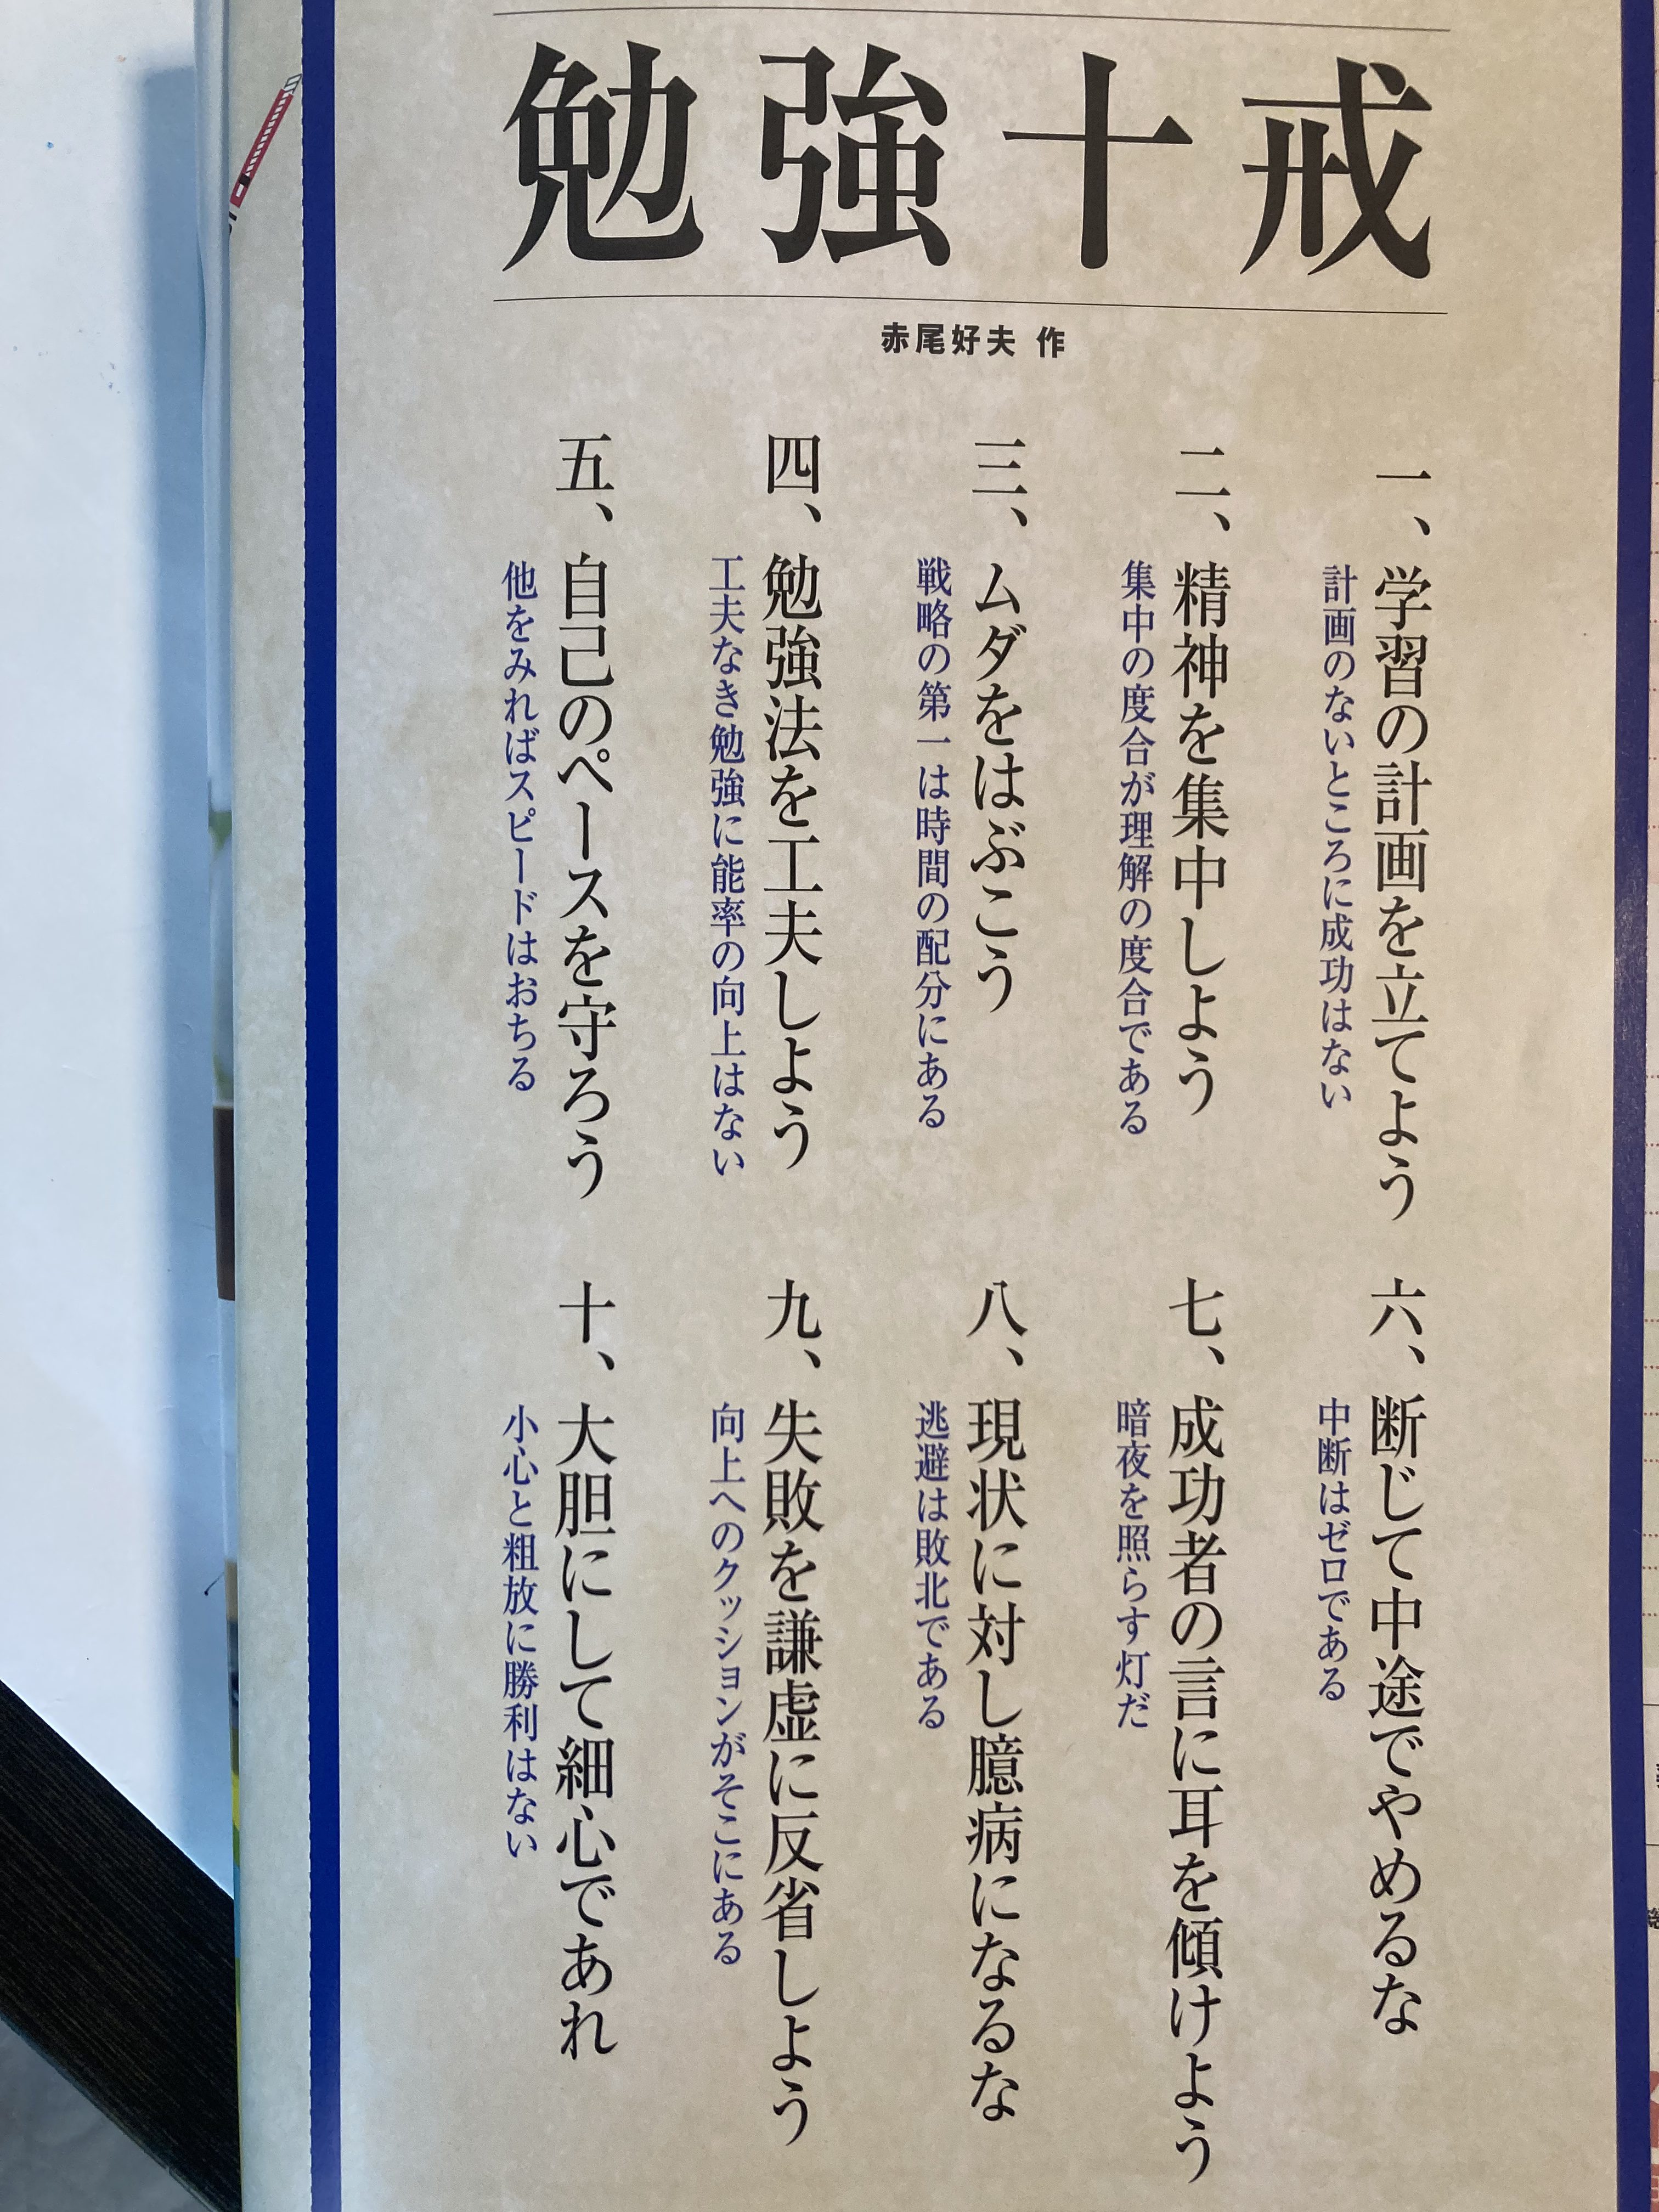 勉強十戒
赤尾好夫 作
一、学習の計画を立てよう
計画のないところに成功はない
二、精神を集中しよう
集中の度合が理解の度合である
三、ムダをはぶこう
戦略の第一は時間の配分にある
四、勉強法を工夫しよう
工夫なき勉強に能率の向上はない
五、自己のペースを守ろう
他をみればスピードはおちる
六、断じて中途でやめるな
中断はゼロである
七、成功者の言に耳を傾けよう
暗夜を照らす灯だ
八、現状に対し臆病になるな
逃避は敗北である
九、失敗を謙虚に反省しよう
向上へのクッションがそこにある
十、大胆にして細心であれ
小心と粗放に勝利はない